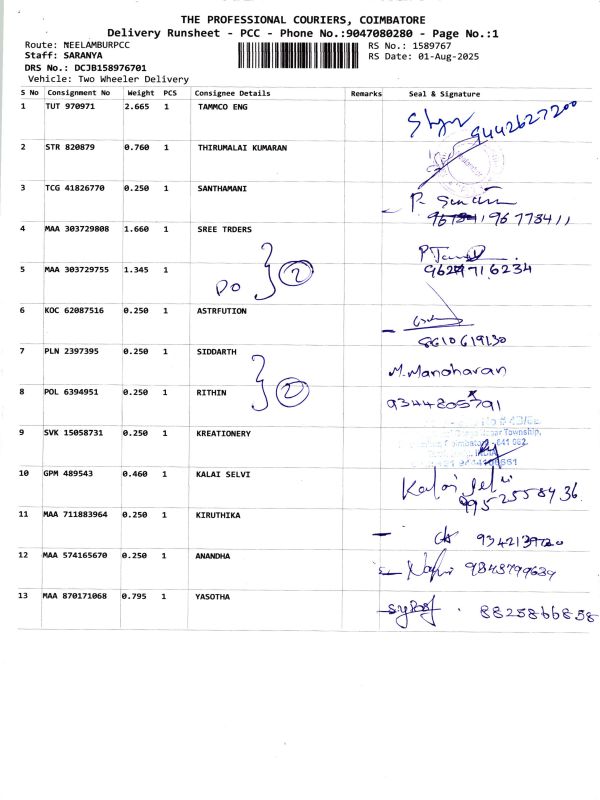 THE PROFESSIONAL COURIERS, COIMBATORE
Delivery Runsheet - PCC - Phone No.:9047080280 - Page No.:1
Route: NEELAMBURPCC
RS No.: 1589767
Staff: SARANYA
RS Date: 01-Aug-2025
DRS No.: DCJB158976701
Vehicle: Two Wheeler Delivery
S No Consignment No Weight PCS Consignee Details Remarks Seal & Signature
1 TUT 970971 2.665 1 TAMMCO ENG
9442627200
2 STR 820879 0.760 1 THIRUMALAI KUMARAN
3 TCG 41826770 0.250 1 SANTHAMANI
4 MAA 303729808 1.660 1 SREE TRDERS
5 MAA 303729755 1.345 1 DO 2
9629716234
6 KOC 62087516 0.250 1 ASTRFUTION
8610619130
7 PLN 2397395 0.250 1 SIDDARTH
M.Manoharan
8 POL 6394951 0.250 1 RITHIN 2
9344805791
9 SVK 15058731 0.250 1 KREATIONERY
Township,
10 GPM 489543 0.460 1 KALAI SELVI
Kalai Selvi
9952558436
11 MAA 711883964 0.250 1 KIRUTHIKA
12 MAA 574165670 0.250 1 ANANDHA
9843799639
13 MAA 870171068 0.795 1 YASOTHA
8825866858